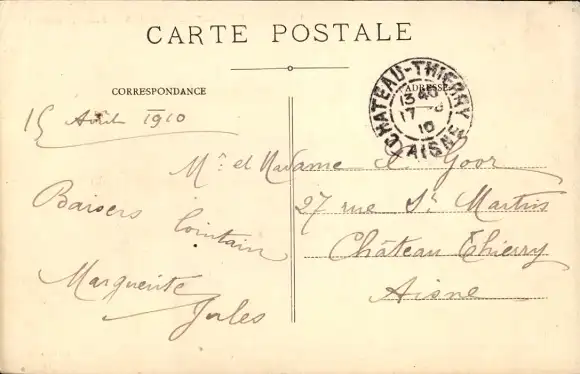 CARTE POSTALE
CORRESPONDANCE
ADRESSE
CHATEAU-THIERRY
13 40
17 - 8
10
AISNE
15 Août 1910
Mr et Madame de Goor
27 rue St Martin
Château Thierry
Aisne
Baisers lointain
Marguerite
Jules